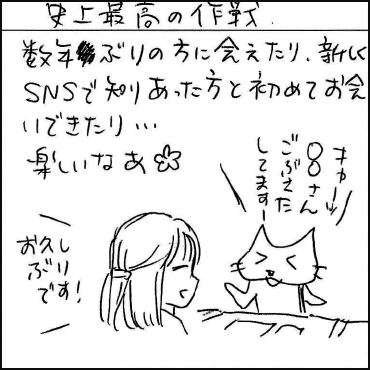 史上最高の作戦.
数年ぶりの方に会えたり、新しく
SNSで知りあった方と初めてお会
いできたり…
楽しいなあ
キャーッ
〇〇さん
ごぶさた
してますー
お久し
ぶり
です!